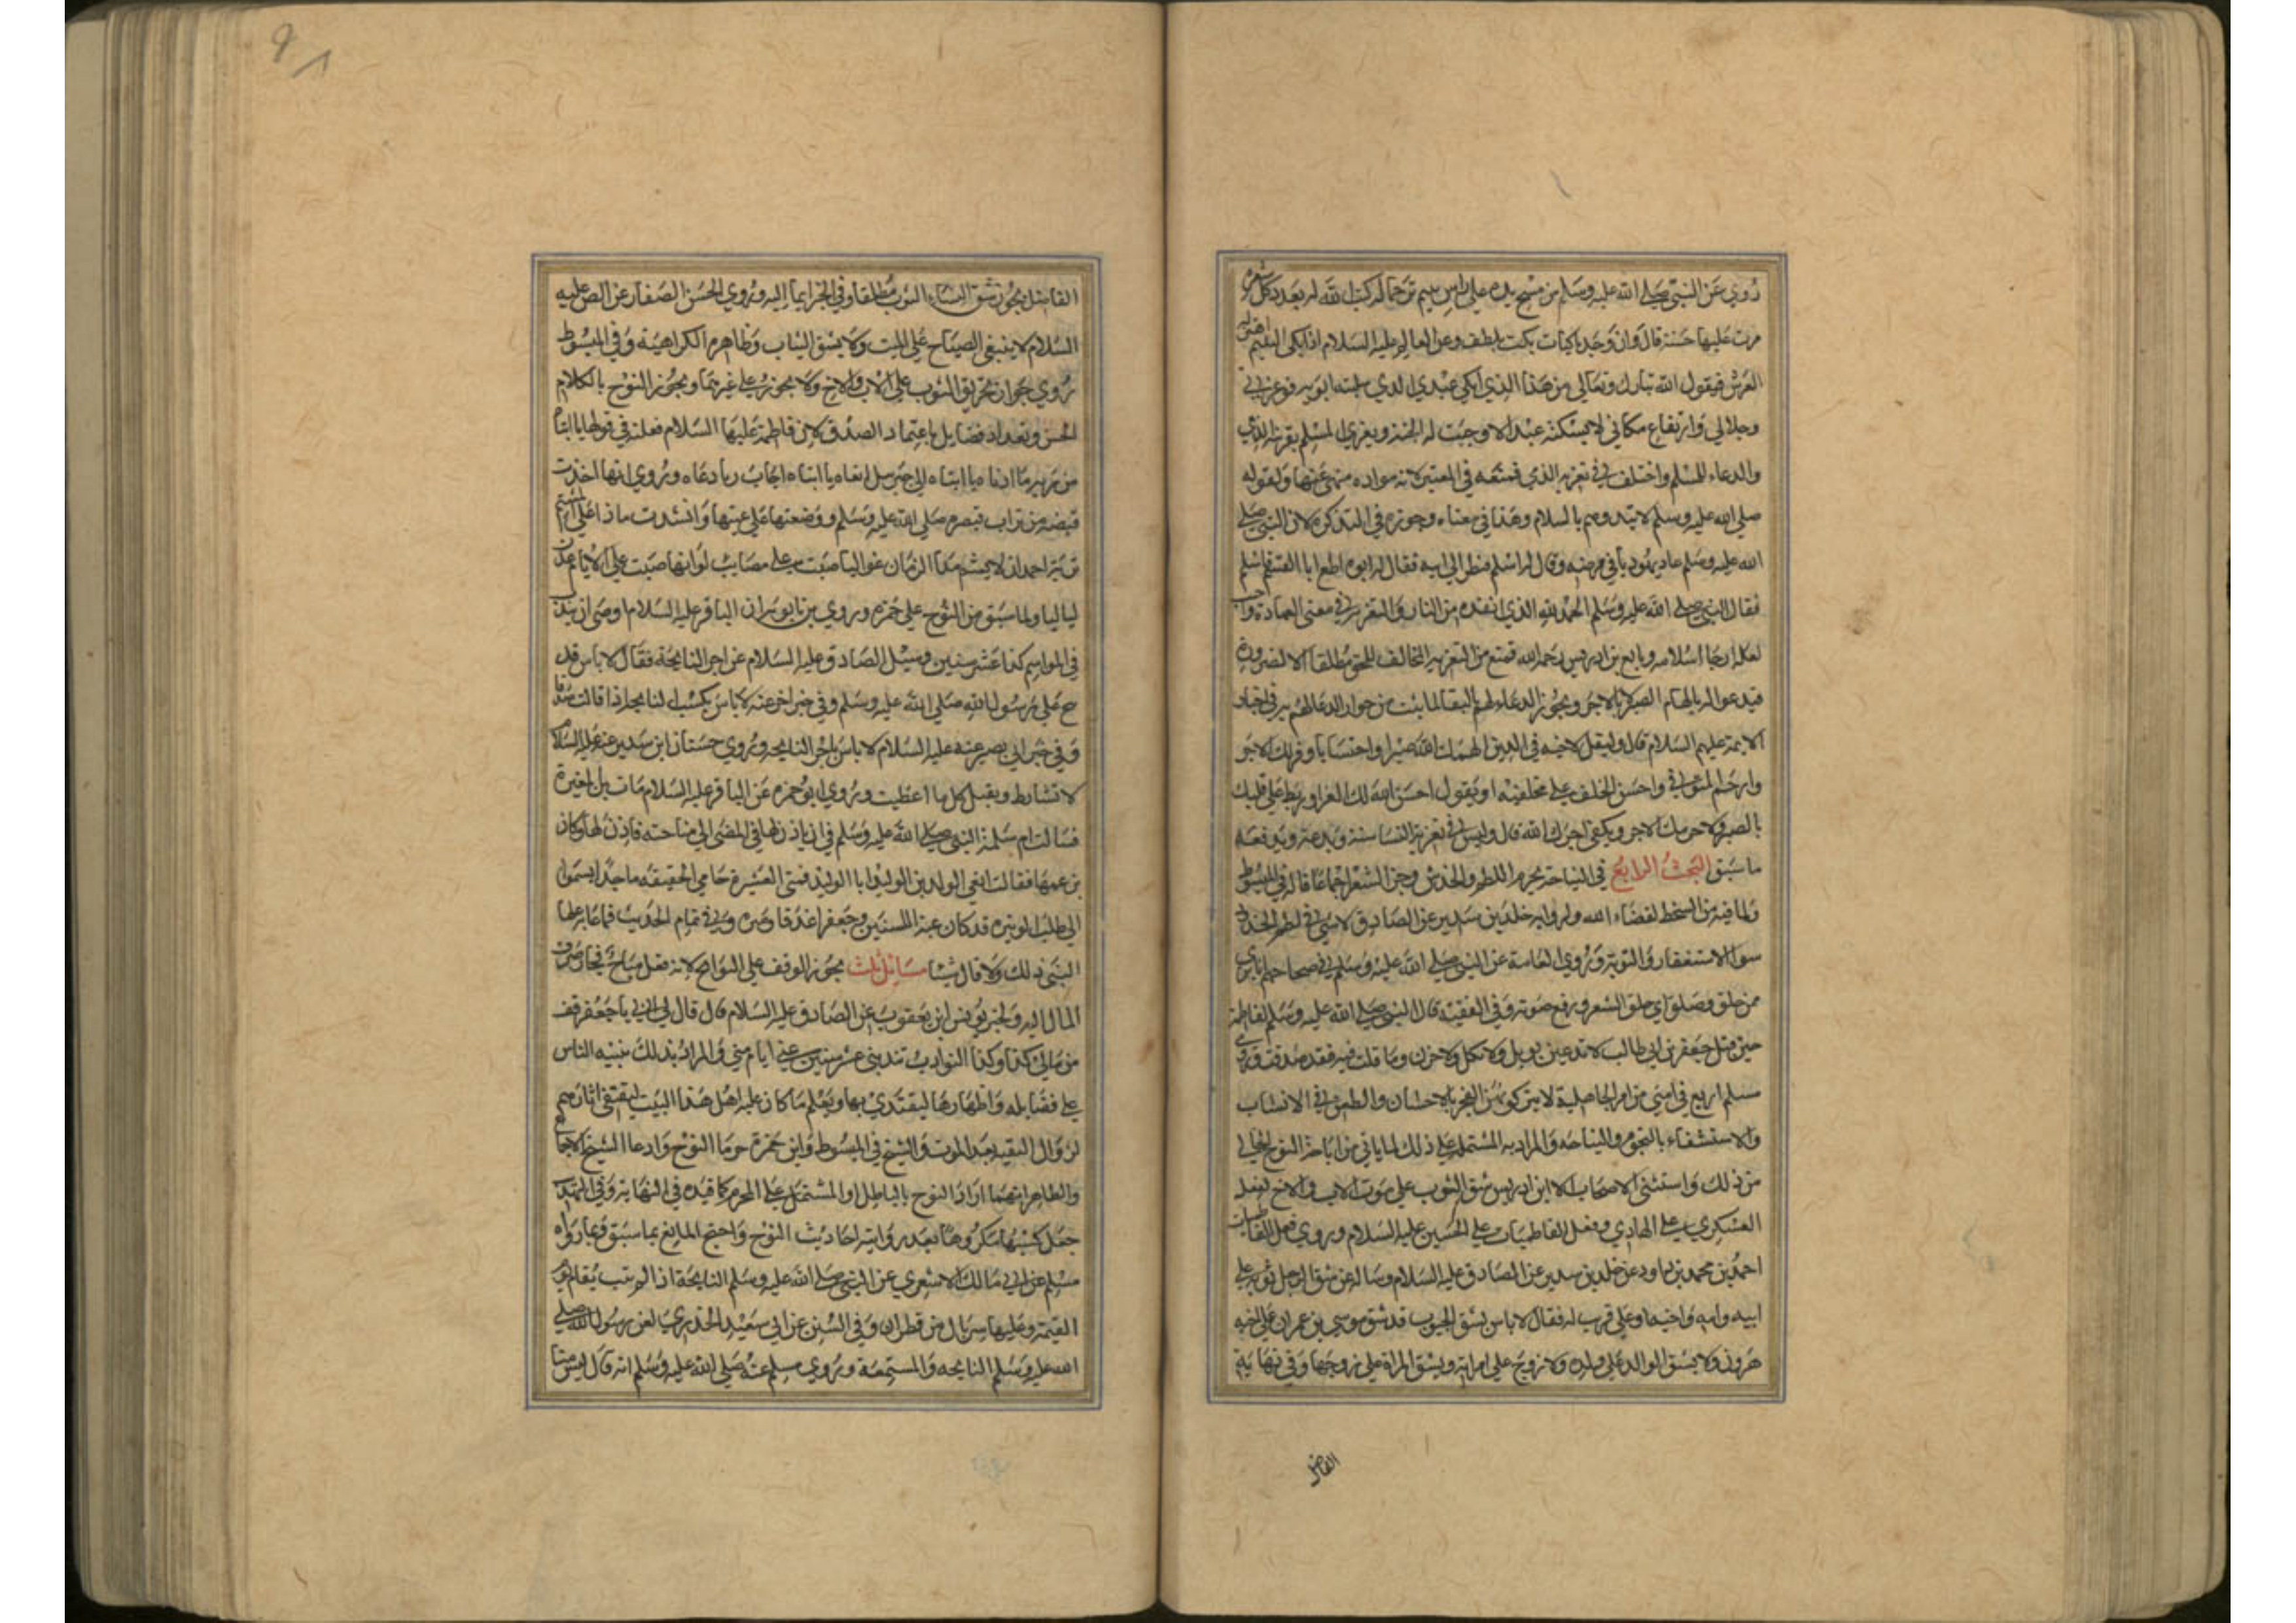 روي عن النبي صلى الله عليه وسلم من مسح يده على راس يتيم ترحما له كتب الله له بعدد كل شعرة
مرت عليها حسنة قال وان وجد باكيات بكت بلطف وعن العالم عليه السلام اذا بكى اليتيم اهتز له
العرش فيقول الله تبارك وتعالى من هذا الذي ابكى عبدي الذي سلبته ابويه فوعزتي
وجلالي وارتفاع مكاني لا يسكته عبد الا وجبت له الجنة ويعزي المسلم بقريبه الذمي
والدعاء للمسلم واختلف في تعزية الذمي فمنعه في المعتبر لانه موادة منهي عنها ولقوله
صلى الله عليه وسلم لا تبدوهم بالسلام وهذا في معناه وجوزه في التذكرة لان النبي صلى
الله عليه وسلم عاد يهوديا في مرضه وقال له اسلم فنظر الى ابيه فقال له ابوه اطع ابا القسم فاسلم
فقال النبي صلى الله عليه وسلم الحمد لله الذي انقذه من النار والتعزية في معنى العيادة
لعله ارجا اسلامه وبالغ بن ادريس رحمه الله فمنع من التعزية المخالف للحق مطلقا الا لضرورة
فيدعو له بالهام الصبر لا بالاجر ويجوز الدعاء لهم بالبقا لما ثبت من جواز الدعا لهم في اخبار
الايمة عليهم السلام قال وليقل لاخيه في الدين الهمك الله صبرا واحتسابا ووفر لك الاجر
وارحم المتوفى واحسن الخلف على مخلفيه او يقول احسن الله لك العزا وربط على قلبك
بالصبر ولا حرمك الاجر ويكفي اجرك الله قال وليس في تعزية النسا سنة وبدعة ويدفعه
ما سبق البحث الرابع في النياحة يحرم اللطم والخدش وجز الشعر اجماعا قاله في المبسوط
ولما فيه من السخط لقضاء الله ولرواية خلد بن سدير عن الصادق لا شي في لطم الخدود
سوا الاستغفار والتوبة وروي العامة عن النبي صلى الله عليه وسلم في صحاحهم انا بري
ممن حلق وصلق اي حلق الشعر ورفع صوته وفي الفقيه قال النبي صلى الله عليه وسلم لفاطمة
حين قتل جعفر بن ابي طالب لا تدعين بويل ولا ثكل ولا حزن وما قلت فيه فقد صدقت
مسلم اربع في امتي من امر الجاهلية لا يتركونهن الفخر بالاحساب والطعن في الانساب
والاستسقاء بالنجوم والنياحة والمراد به المشتملة على ذلك لما ياتي من اباحة النوح الخالي
من ذلك واستثنى الاصحاب الا ابن ادريس شق الثوب على موت الاب والاخ لفعل
العسكري على الهادي وفعل الفاطميات على الحسين عليه السلام وروي فعل الفاطميات
احمد بن محمد بن داود عن خلد بن سدير عن الصادق عليه السلام وساله عن شق الرجل ثوبه على
ابيه وامه واخيه او على قريب له فقال لا باس بشق الجيوب قد شق موسى بن عمران على اخيه
هرون ولا يشق الوالد على ولده ولا زوج على امراته ويشق المراة على زوجها وفي نهاية
الفاضل
الفاضل يجوز شق النساء الثوب مطلقا وفي الخبر ايما اليه وروي الحسن الصفار عن الص عليه
السلام لا ينبغي الصياح على الميت ولا يشق الثياب وظاهره الكراهية وفي المبسوط
روي جواز تخريق الثوب على الاب والاخ ولا يجوز على غيرهما ويجوز النوح بالكلام
الحسن وتعداد فضايله باعتماد الصدق لان فاطمة عليها السلام فعلته في قولها يا ابتاه
من ربه ما ادناه يا ابتاه الى جبرييل انعاه يا ابتاه اجاب ربا دعاه وروي انها اخذت
قبضة من تراب قبره صلى الله عليه وسلم ووضعتها على عينها وانشدت ماذا على المشتم
تربة احمد ان لا يشم مدا الزمان غواليا صبت علي مصايب لو انها صبت على الايام عدن
لياليا ولما سبق من النوح على حمزة وروي بن بابويه ان الباقر عليه السلام اوصى ان يندب
في المواسم كذا عشر سنين وسيل الصادق عليه السلام عن اجر النايحة فقال لا باس قد
نيح على رسول الله صلى الله عليه وسلم وفي خبر اخر عنه لا باس بكسب النايحة اذا قالت صدقا
وفي خبر ابي بصير عنه عليه السلام لا باس باجر النايحة وروي حسنان ابن سدير عنه عليه السلام
لا تشارط وتقبل كل ما اعطيت وروي ابو حمزة عن الباقر عليه السلام مات بن المغيرة
فسالت ام سلمة النبي صلى الله عليه وسلم في ان ياذن لها في المضي الى مناحته فاذن لها وكان
بن عمها فقالت انعي الوليد بن الوليد ابا الوليد فتى العشيرة حامي الحقيقة ماجدا يسموا
الى طلب الوتيرة قد كان غيثا للسنين وجعفرا غدقا وميره وفي تمام الحديث فما عاب عليها
النبي ذلك ولا قال شيا مسائل ثلث يجوز الوقف على النوايح لانه فعل مباح فجاز صرف
المال اليه ولخبر يونس ابن يعقوب عن الصادق عليه السلام قال قال لي ابي يا جعفر قف
من مالي كذا وكذا النوادب تندبني عشر سنين بمنى ايام منى والمراد بذلك تنبيه الناس
على فضايله واظهارها ليقتدي بها ويعلم ما كان عليه اهل هذا البيت ليقتفي اثارهم
لزوال التقية بعد الموت والشيخ في المبسوط وابن حمزة حرما النوح وادعا الشيخ الاجماع
والظاهر انهما ارادا النوح بالباطل او المشتمل على المحرم كما قيده في النهاية وفي التهذيب
جعل كسبها مكروها بعد روايته احاديث النوح واحتج المانع بما سبق وبما رواه
مسلم عن ابي مالك الاشعري عن النبي صلى الله عليه وسلم النايحة اذا لم تتب تقام يوم
القيمة وعليها سربال من قطران وفي السنن عن ابي سعيد الخدري لعن رسول الله صلى
الله عليه وسلم النايحة والمستمعة وروي مسلم عنه صلى الله عليه وسلم انه قال ليس منا